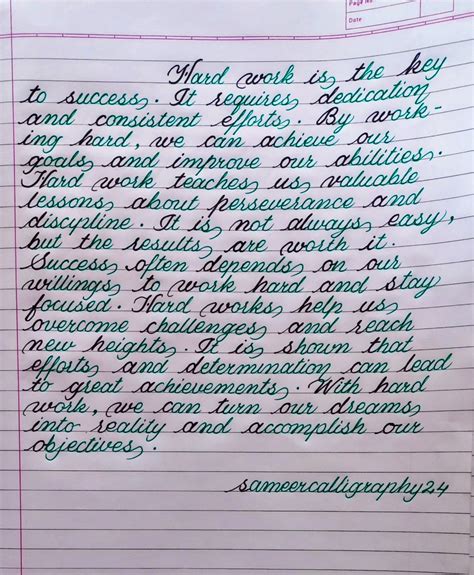 Page No.
Date
Hard work is the key
to success. It requires dedication
and consistent efforts. By work-
ing hard, we can achieve our
goals and improve our abilities.
Hard work teaches us valuable
lessons about perseverance and
discipline. It is not always easy,
but the results are worth it.
Success often depends on our
willings to work hard and stay
focused. Hard works help us
overcome challenges and reach
new heights. It is shown that
efforts and determination can lead
to great achievements. With hard
work, we can turn our dreams
into reality and accomplish our
objectives.
sameercalligraphy24